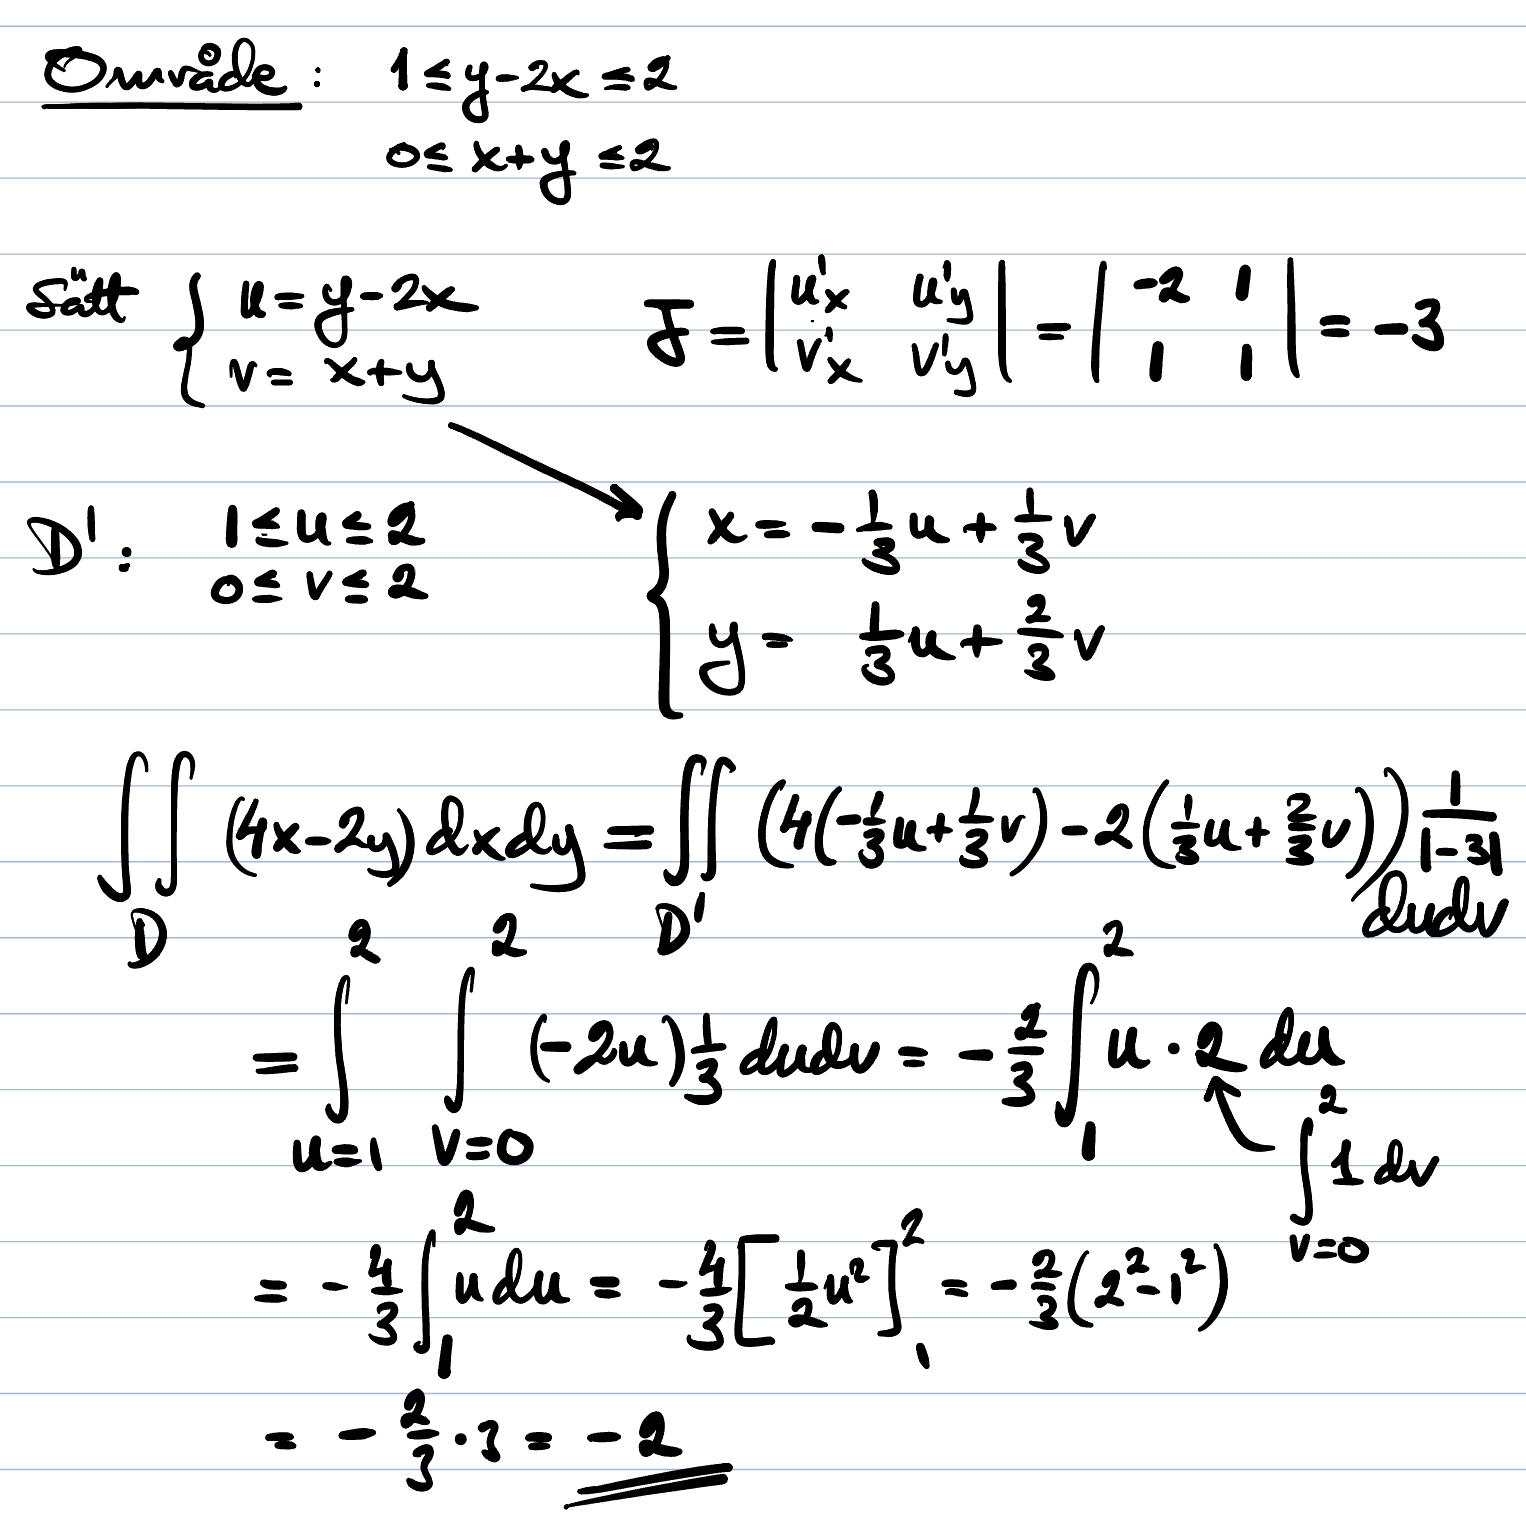 Område: 1 ≤ y-2x ≤ 2
0 ≤ x+y ≤ 2
Sätt { u = y-2x  J = | u'x u'y | = | -2 1 | = -3
v = x+y  | v'x v'y |  | 1 1 |
D': 1 ≤ u ≤ 2  { x = -1/3 u + 1/3 v
0 ≤ v ≤ 2  y = 1/3 u + 2/3 v
∬_D (4x-2y) dxdy = ∬_D' (4(-1/3 u + 1/3 v) - 2(1/3 u + 2/3 v)) 1/|-3| dudv
= ∫_{u=1}^{2} ∫_{v=0}^{2} (-2u) 1/3 dudv = -2/3 ∫_1^2 u · 2 du
∫_{v=0}^{2} 1 dv
= -4/3 ∫_1^2 u du = -4/3 [1/2 u²]_1^2 = -2/3 (2²-1²)
= -2/3 · 3 = -2